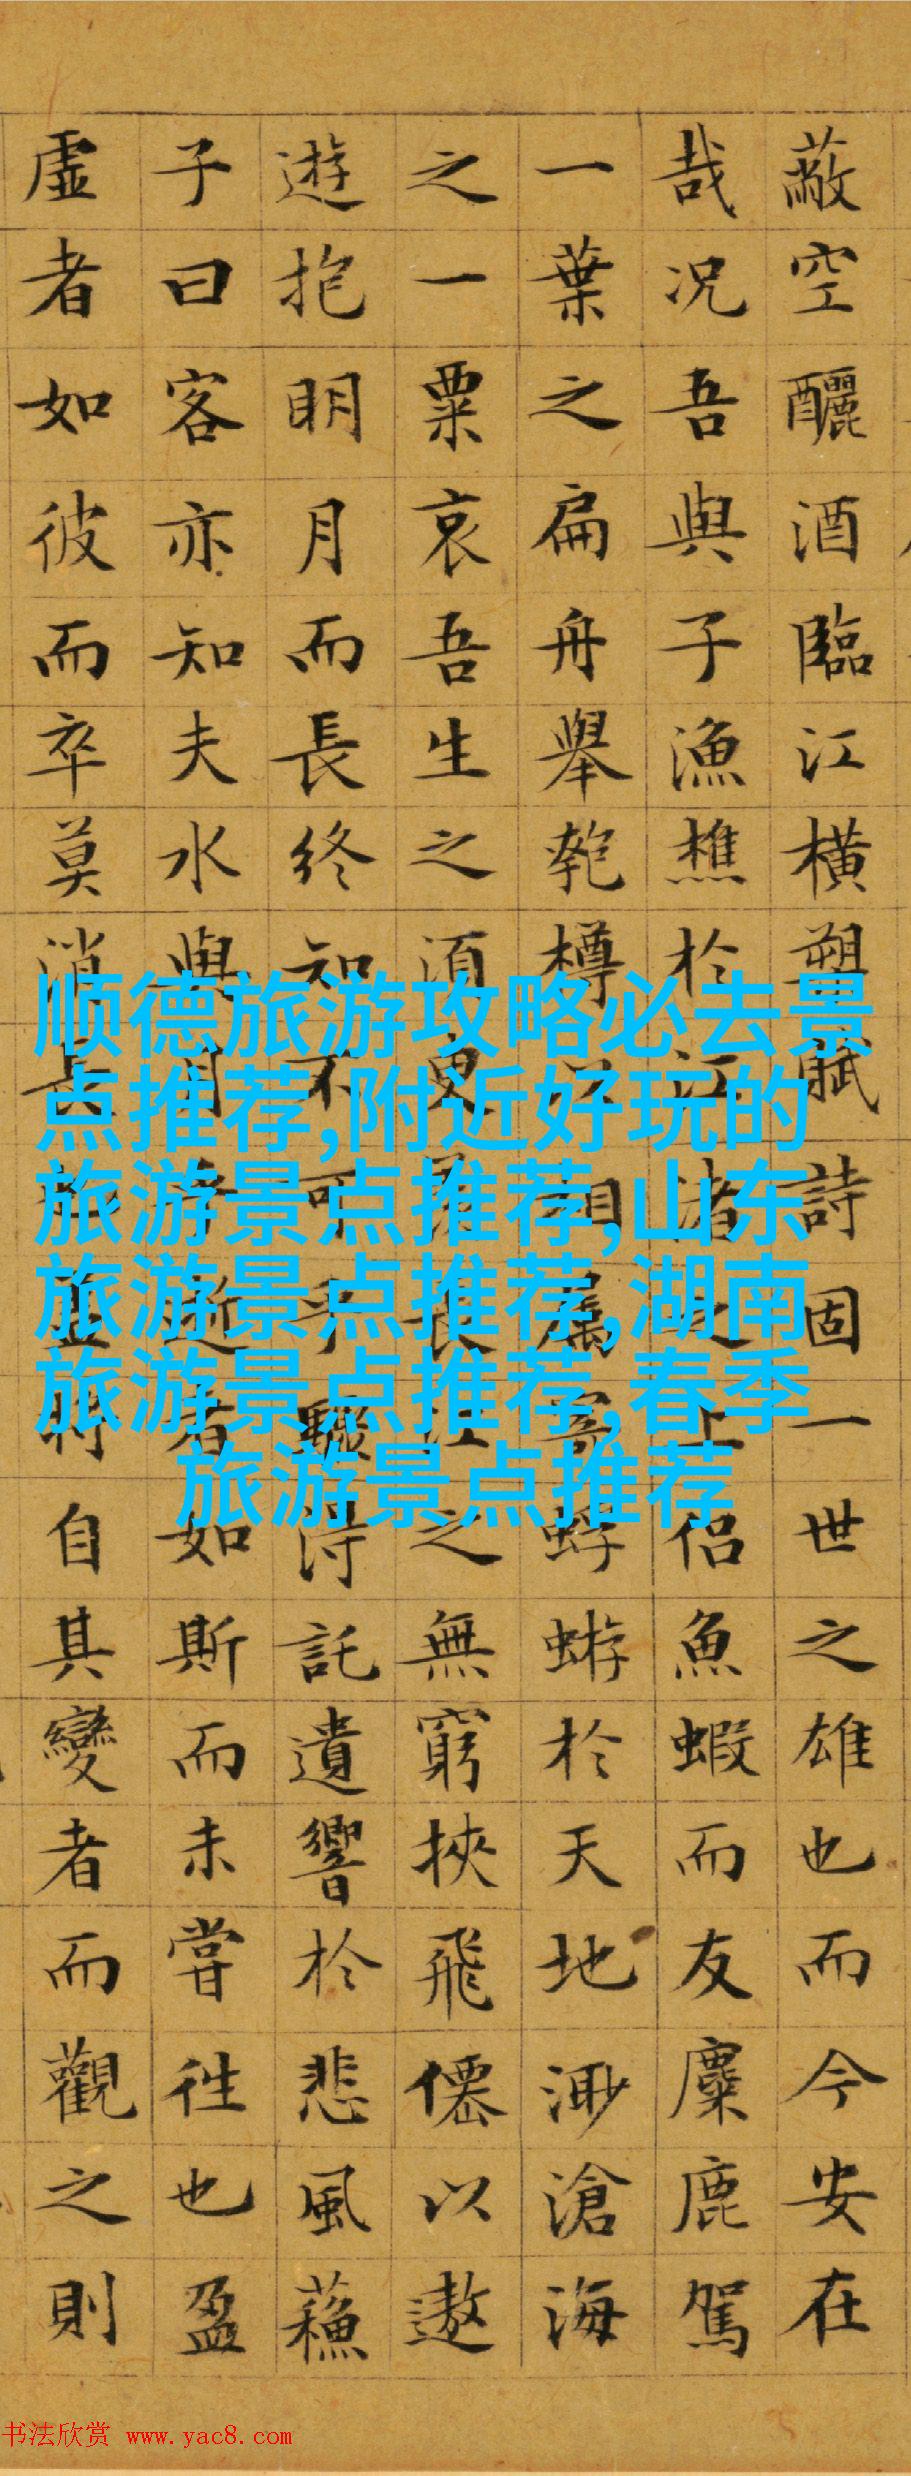 蔽空釃酒臨江橫槊賦詩固一世之雄也而今安在
哉况吾與子漁樵於江渚之上侶魚蝦而友麋鹿駕
一葉之扁舟舉匏樽以相屬寄蜉蝣於天地渺滄海
之一粟哀吾生之須臾羨長江之無窮挾飛僊以遨
遊抱明月而長終知不可乎驟得託遺響於悲風蘓
子曰客亦知夫水與月乎逝者如斯而未嘗往也盈
虛者如彼而卒莫消長也蓋將自其變者而觀之則
顺德旅游攻略必去景
点推荐,附近好玩的
旅游景点推荐,山东
旅游景点推荐,湖南
旅游景点推荐,春季
旅游景点推荐
书法欣赏 www.yac8.com